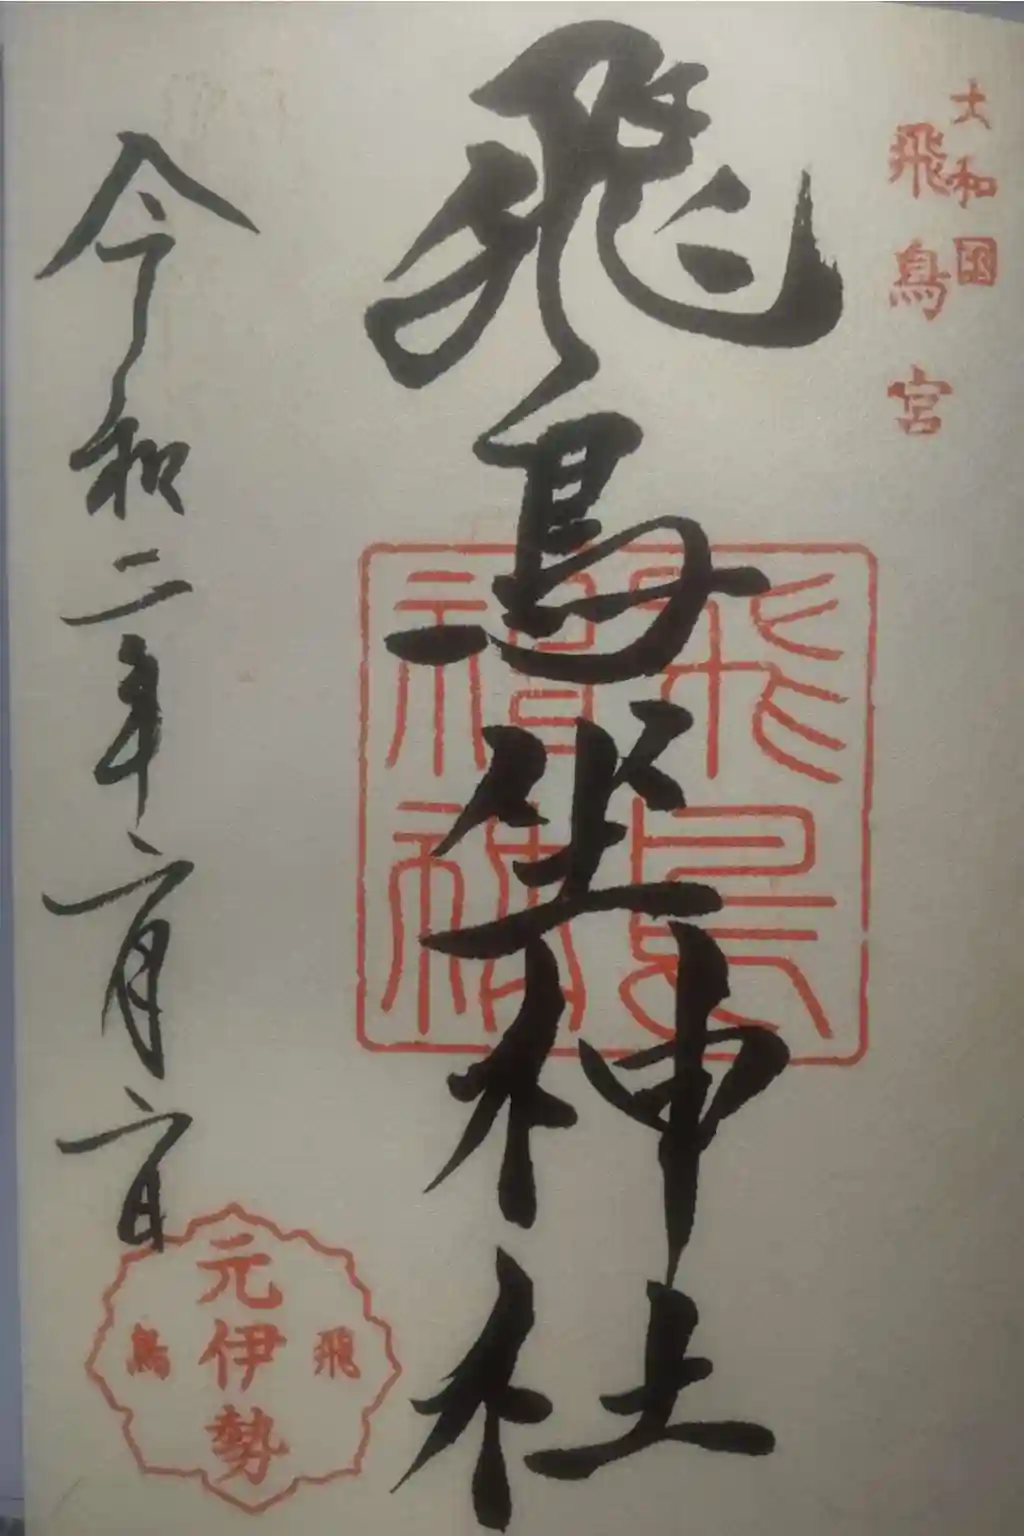 大和國
飛鳥宮
飛鳥坐神社
飛鳥
神社
令和二年 月 日
飛
元伊勢
鳥